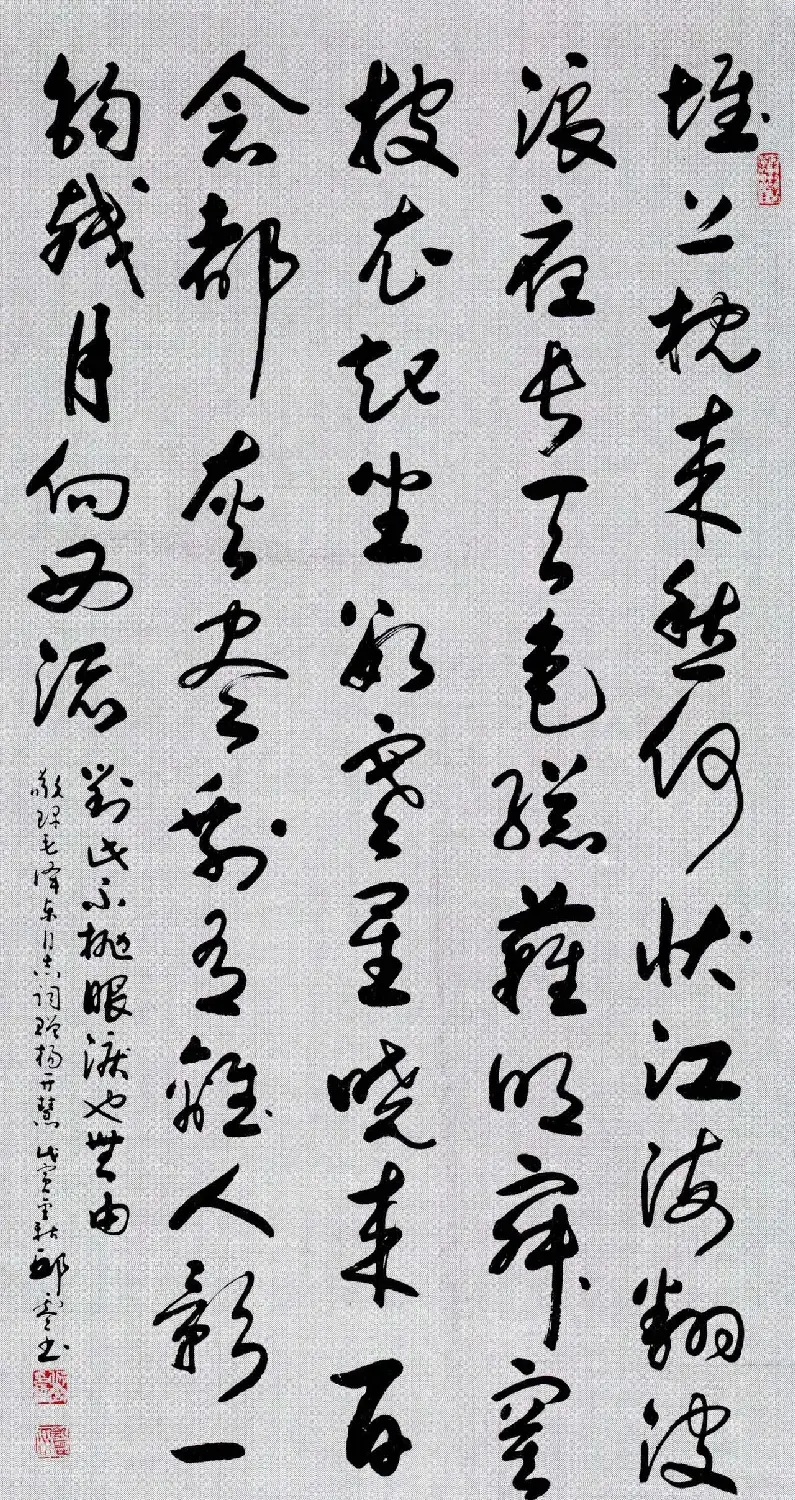 堆上枕来愁何状江海翻波
浪夜长天色總難明寂寞
披衣起坐数寒星晓来百
念都灰尽剩有離人影一
钩残月向西流
對此不抛眼淚也無由
敬录毛泽东同志词赠杨开慧 戊寅秋邱书